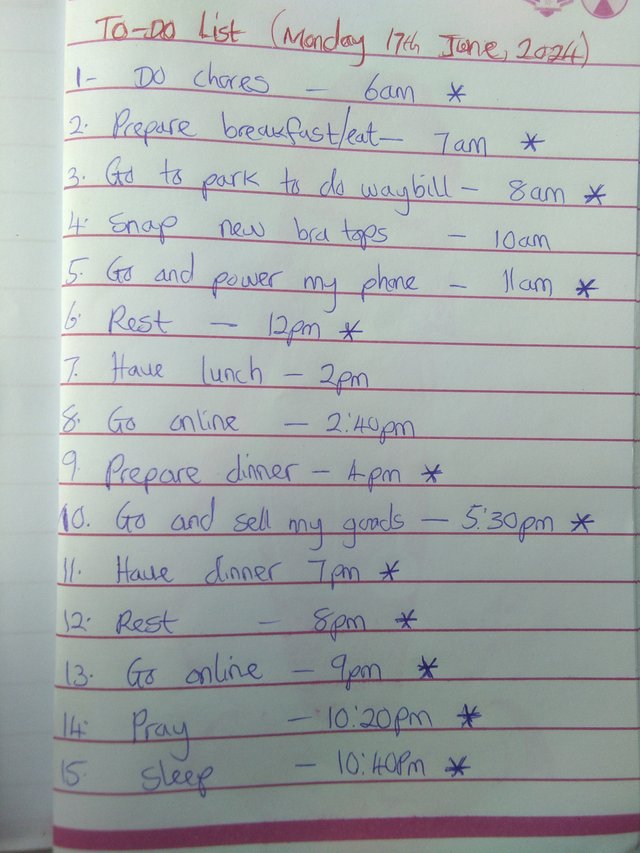 To-Do List (Monday 17th June, 2024)
1- Do chores - 6am *
2. Prepare breakfast/eat- 7am *
3. Go to park to do waybill - 8am *
4. Snap new bra tops - 10am
5. Go and power my phone - 11am *
6. Rest - 12pm *
7. Have lunch - 2pm
8. Go online - 2:40pm
9. Prepare dinner - 4pm *
10. Go and sell my goods - 5:30pm *
11. Have dinner 7pm *
12. Rest - 8pm *
13. Go online - 9pm *
14. Pray - 10:20pm *
15. Sleep - 10:40pm *